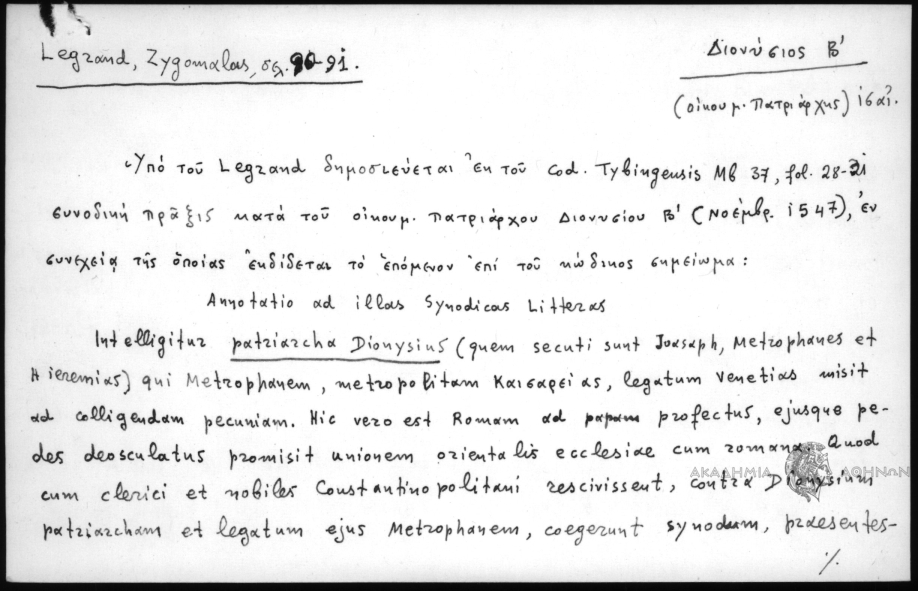 Legrand, Zygomalas, σε. 90-91.
Διονύσιος Β'
(οἰκουμ. Πατριάρχης) ις αἰ.
Ὑπό τοῦ Legrand δημοσιεύεται ἐκ τοῦ Cod. Tybingensis Mb 37, fol. 28-31
συνοδική πρᾶξις κατά τοῦ οἰκουμ. Πατριάρχου Διονυσίου Β' (Νοέμβρ. 1547), ἐν
συνεχείᾳ τῆς ὁποίας ἐκδίδεται τό ἑπόμενον ἐπί τοῦ κώδικος σημείωμα:
Annotatio ad illas Synodicas Litteras
Intelligitur patriarcha Dionysius (quem secuti sunt Joasaph, Metrophanes et
Hieremias) qui Metrophanem, metropolitam Καισαρείας, legatum Venetias misit
ad colligendam pecuniam. Hic vero est Romam ad papam profectus, ejusque pe-
des deosculatus promisit unionem orientalis ecclesiae cum romana. Quod
ΑΚΑΔΗΜΙΑ ΑΘΗΝΩΝ
cum clerici et nobiles Constantinopolitani rescivissent, contra Dionysium
patriarcham et legatum ejus Metrophanem, coegerunt synodum, praesentes-
./.